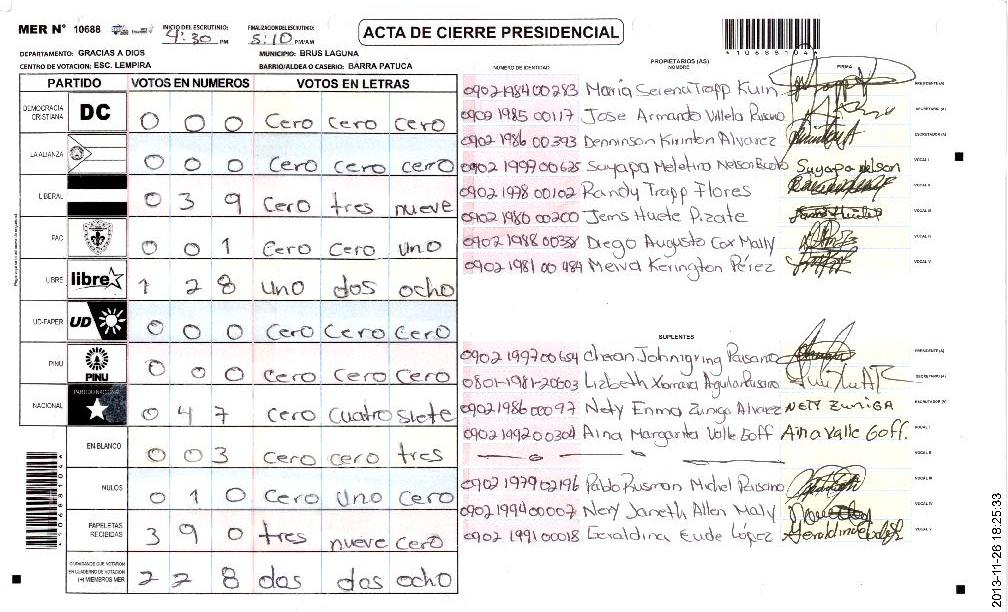 MER N° 10688 INICIO DEL ESCRUTINIO: 4:30 PM FINALIZACION DEL ESCRUTINIO: 5:10 PM/AM ACTA DE CIERRE PRESIDENCIAL
DEPARTAMENTO: GRACIAS A DIOS MUNICIPIO: BRUS LAGUNA
CENTRO DE VOTACION: ESC. LEMPIRA BARRIO/ALDEA O CASERIO: BARRA PATUCA
PARTIDO VOTOS EN NUMEROS VOTOS EN LETRAS
DEMOCRACIA CRISTIANA DC 0 0 0 Cero cero cero
LA ALIANZA 0 0 0 Cero cero cero
LIBERAL 0 3 9 Cero tres nueve
PAC 0 0 1 Cero Cero uno
LIBRE libre 1 2 8 uno dos ocho
UD-FAPER UD 0 0 0 Cero Cero Cero
PINU PINU 0 0 0 Cero Cero Cero
NACIONAL PARTIDO NACIONAL 0 4 7 Cero cuatro siete
EN BLANCO 0 0 3 Cero cero tres
NULOS 0 1 0 Cero uno cero
PAPELETAS RECIBIDAS 3 9 0 tres nueve cero
CIUDADANOS QUE VOTARON EN CUADERNO DE VOTACION (+) MIEMBROS MER 2 2 8 dos dos ocho
*10688104*
PROPIETARIOS (AS)
NUMERO DE IDENTIDAD NOMBRE FIRMA
0902-1984 00283 Maria Serena Trapp Kuin PRESIDENTE (A)
0902 1985 00117 Jose Armando Villela Paisano SECRETARIO (A)
0902 1986 00393 Denninson Kirinton Alvarez ESCRUTADOR (A)
0902 1997 00625 Suyapa Meletina Nelson Suyapa Nelson VOCAL I
0902 1998 00102 Randy Trapp Flores VOCAL II
0902 1980 00200 Jems Huete Pizate VOCAL III
0902 1988 00338 Diego Augusto Cox Mally VOCAL IV
0902 1981 00 484 Meiva Kerington Pérez VOCAL V
SUPLENTES
0902 1997 00654 Johnygring Paisano PRESIDENTE (A)
0801-1981-20603 Lizbeth Xiomara Aguilar Paisano SECRETARIO (A)
0902 1986 00097 Nety Enma Zuniga Alvarez NETY ZUNIGA ESCRUTADOR (A)
0902 1992 00304 Aina Margarita Valle Goff Aina Valle Goff. VOCAL I
VOCAL II
0902 1979 02196 Pablo Rusman Michel Paisano VOCAL III
0902 1994 00007 Nery Janeth Allen Maly VOCAL IV
0902 1991 00018 Geraldina Eude López VOCAL V
*10688104*
2013-11-26 18:25:33